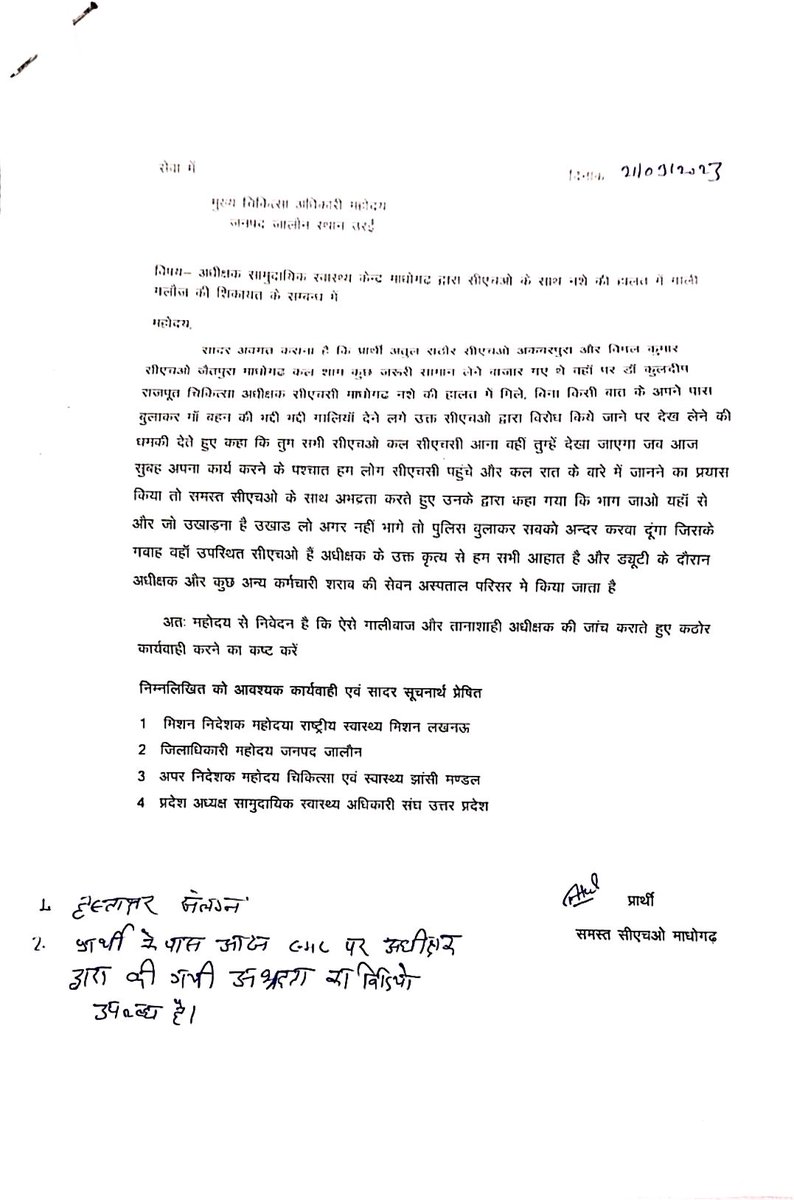 सेवा में
दिनांक 21/09/2023
मुख्य चिकित्सा अधिकारी महोदय
जनपद जालौन स्थान उरई
विषय– अधीक्षक सामुदायिक स्वास्थ्य केन्द्र माधोगढ द्वारा सीएचओ के साथ नशे की हालत में गाली
गलौज की शिकायत के सम्बन्ध में
महोदय,
सादर अवगत कराना है कि प्रार्थी अतुल राठौर सीएचओ अकबरपुरा और विमल कुमार
सीएचओ जैतपुरा माधोगढ कल शाम कुछ जरूरी सामान लेने बाजार गए थे वहाँ पर डॉ कुलदीप
राजपूत चिकित्सा अधीक्षक सीएचसी माधोगढ नशे की हालत में मिले, बिना किसी बात के अपने पास
बुलाकर माँ बहन की भद्दी भद्दी गालियाँ देने लगे उक्त सीएचओ द्वारा विरोध किये जाने पर देख लेने की
धमकी देते हुए कहा कि तुम सभी सीएचओ कल सीएचसी आना वहीं तुम्हें देखा जाएगा जब आज
सुबह अपना कार्य करने के पश्चात हम लोग सीएचसी पहुंचे और कल रात के बारे में जानने का प्रयास
किया तो समस्त सीएचओ के साथ अभद्रता करते हुए उनके द्वारा कहा गया कि भाग जाओ यहाँ से
और जो उखाडना है उखाड लो अगर नहीं भागे तो पुलिस बुलाकर सबको अन्दर करवा दूंगा जिसके
गवाह वहाँ उपस्थित सीएचओ हैं अधीक्षक के उक्त कृत्य से हम सभी आहात है और ड्यूटी के दौरान
अधीक्षक और कुछ अन्य कर्मचारी शराब की सेवन अस्पताल परिसर मे किया जाता है
अतः महोदय से निवेदन है कि ऐसे गालीबाज और तानाशाही अधीक्षक की जांच कराते हुए कठोर
कार्यवाही करने का कष्ट करें
निम्नलिखित को आवश्यक कार्यवाही एवं सादर सूचनार्थ प्रेषित
1 मिशन निदेशक महोदया राष्ट्रीय स्वास्थ्य मिशन लखनऊ
2 जिलाधिकारी महोदय जनपद जालौन
3 अपर निदेशक महोदय चिकित्सा एवं स्वास्थ्य झांसी मण्डल
4 प्रदेश अध्यक्ष सामुदायिक स्वास्थ्य अधिकारी संघ उत्तर प्रदेश
Atul प्रार्थी
समस्त सीएचओ माधोगढ़
1. हस्ताक्षर संलग्न
2. प्रार्थी के पास आज CHC पर अधीक्षक
द्वारा की गयी अभद्रता का विडियो
उपलब्ध है।